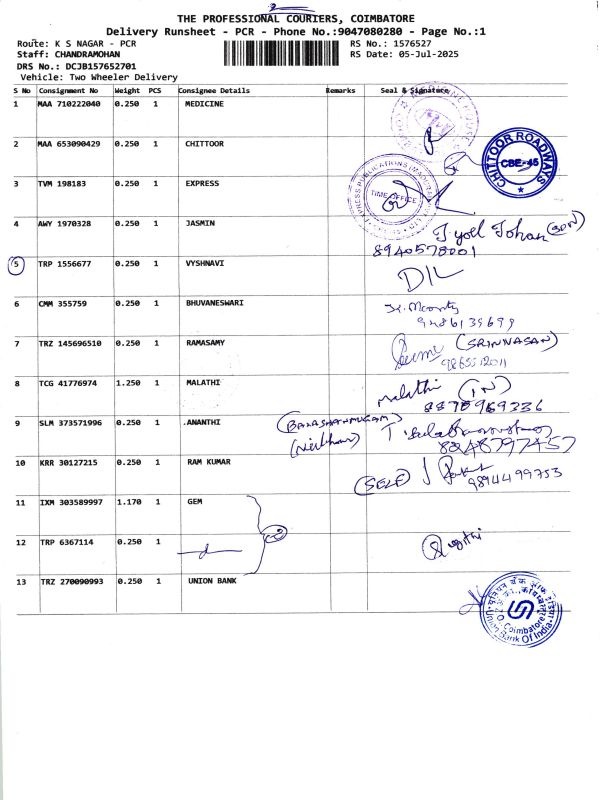 THE PROFESSIONAL COURIERS, COIMBATORE
Delivery Runsheet - PCR - Phone No.:9047080280 - Page No.:1
Route: K S NAGAR - PCR RS No.: 1576527
Staff: CHANDRAMOHAN RS Date: 05-Jul-2025
DRS No.: DCJB157652701
Vehicle: Two Wheeler Delivery
S No Consignment No Weight PCS Consignee Details Remarks Seal & Signature
1 MAA 710222040 0.250 1 MEDICINE
2 MAA 653090429 0.250 1 CHITTOOR
CHITTOOR ROADWAYS
CBE-45
3 TVM 198183 0.250 1 EXPRESS
TIME OFFICE
4 AWY 1970328 0.250 1 JASMIN
Jyoel Johan (SON)
8940578001
5 TRP 1556677 0.250 1 VYSHNAVI
D/L
6 CMM 355759 0.250 1 BHUVANESWARI
7 TRZ 145696510 0.250 1 RAMASAMY
(SRINNASAN)
8 TCG 41776974 1.250 1 MALATHI
Malathi (IN)
8870969336
9 SLM 373571996 0.250 1 .ANANTHI
(BALASHANMUGAM)
8248797457
10 KRR 30127215 0.250 1 RAM KUMAR
(SELF)
9894499753
11 IXM 303589997 1.170 1 GEM
12 TRP 6367114 0.250 1
13 TRZ 270090993 0.250 1 UNION BANK
Union Bank Of India
Coimbatore